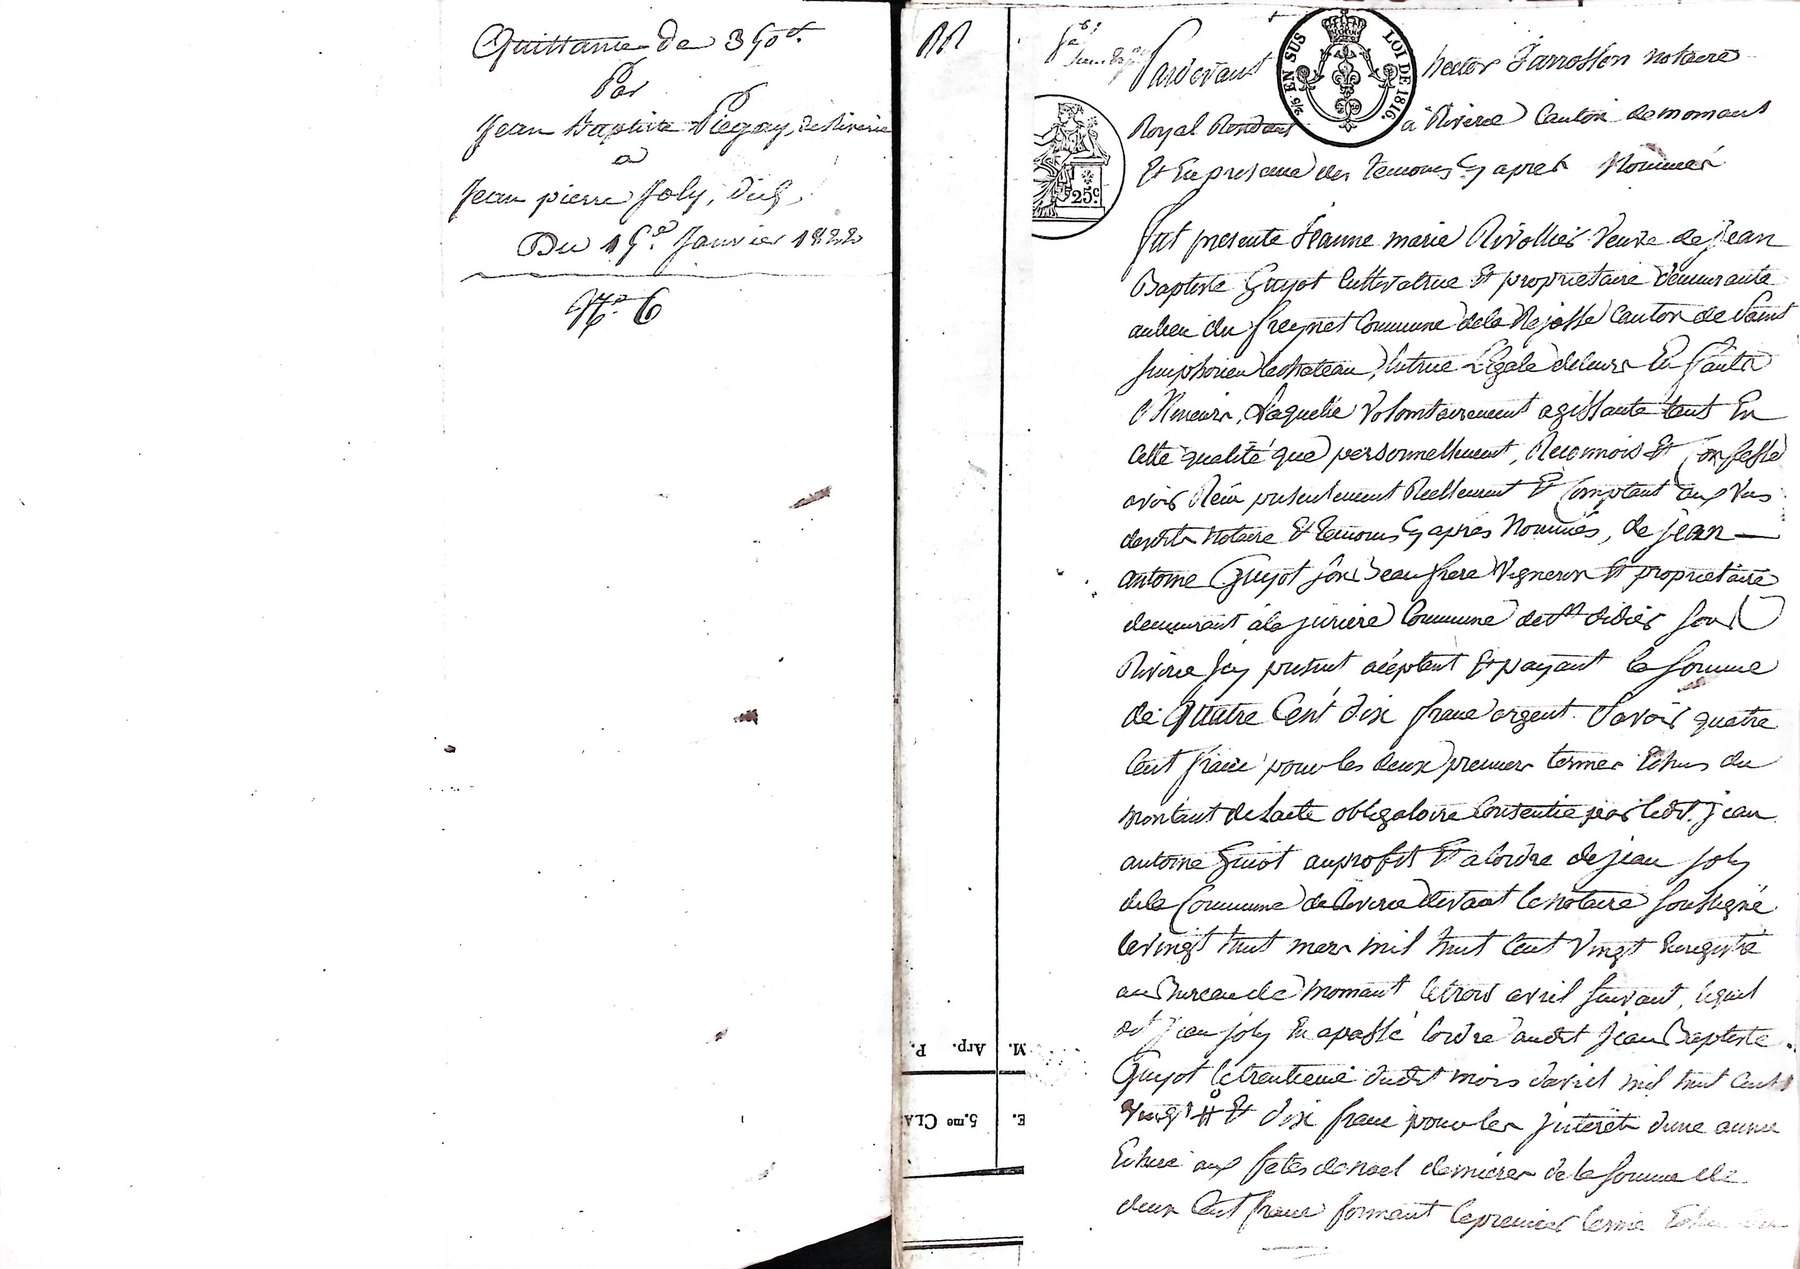 Quittance de 390f.
Par
Jean Baptiste Piegay, de Riverie
a
Jean pierre Joly, dud.
Du 15e. Janvier 1822
N.o 6
Pardevant hector notaire
Royal Residant à Riverie Canton de mornant
Et En presence des temoins Cy apres Nommés
fut presente Jeanne marie Rivollier veuve de Jean
Baptiste Guyot Cultivatrice Et proprietaire demeurante
au lieu du freynet Commune de la Rajasse Canton de Saint
simphorien le chateau, tutrice Légale de leurs Enfants
Mineurs, Laquelle Volontairement agissante tant En
Cette qualité que personnellement, Reconnois Et Confesse
avoir Reçu presentement Reellement Et Comptant aux Vus
desdits Notaire Et temoins Cy après Nommés, de jean
antoine Guyot son Beau frere Vigneron Et proprietaire
demeurant à la juriere Commune de St didier sous
Riverie Icy présent acéptant Et payant la somme
de Quatre Cent dix franc argent. Savoir quatre
Cent franc pour les deux premiers termes Echus du
montant de Lacte obligatoire Consentie par ledit. jean
antoine Guiot au profit Et a lordre de jean Joly
de la Commune de Riverie devant le notaire Soussigné
le vingt huit mars mil huit Cent vingt Enregistré
au Bureau de mornant le trois avril suivant, lequel
dit jean joly En a passé lordre audit jean Baptiste
Guyot le trentieme dudit mois davril mil huit Cent
vingt # Et dix franc pour les jnterêts dune année
Echue aux fetes de noel dernieres de la somme de
deux Cent franc formant le premier terme Echu
2/5. EN SUS
LOI DE 1816.
25c
M. Arp. P.
E. 5.me CLA